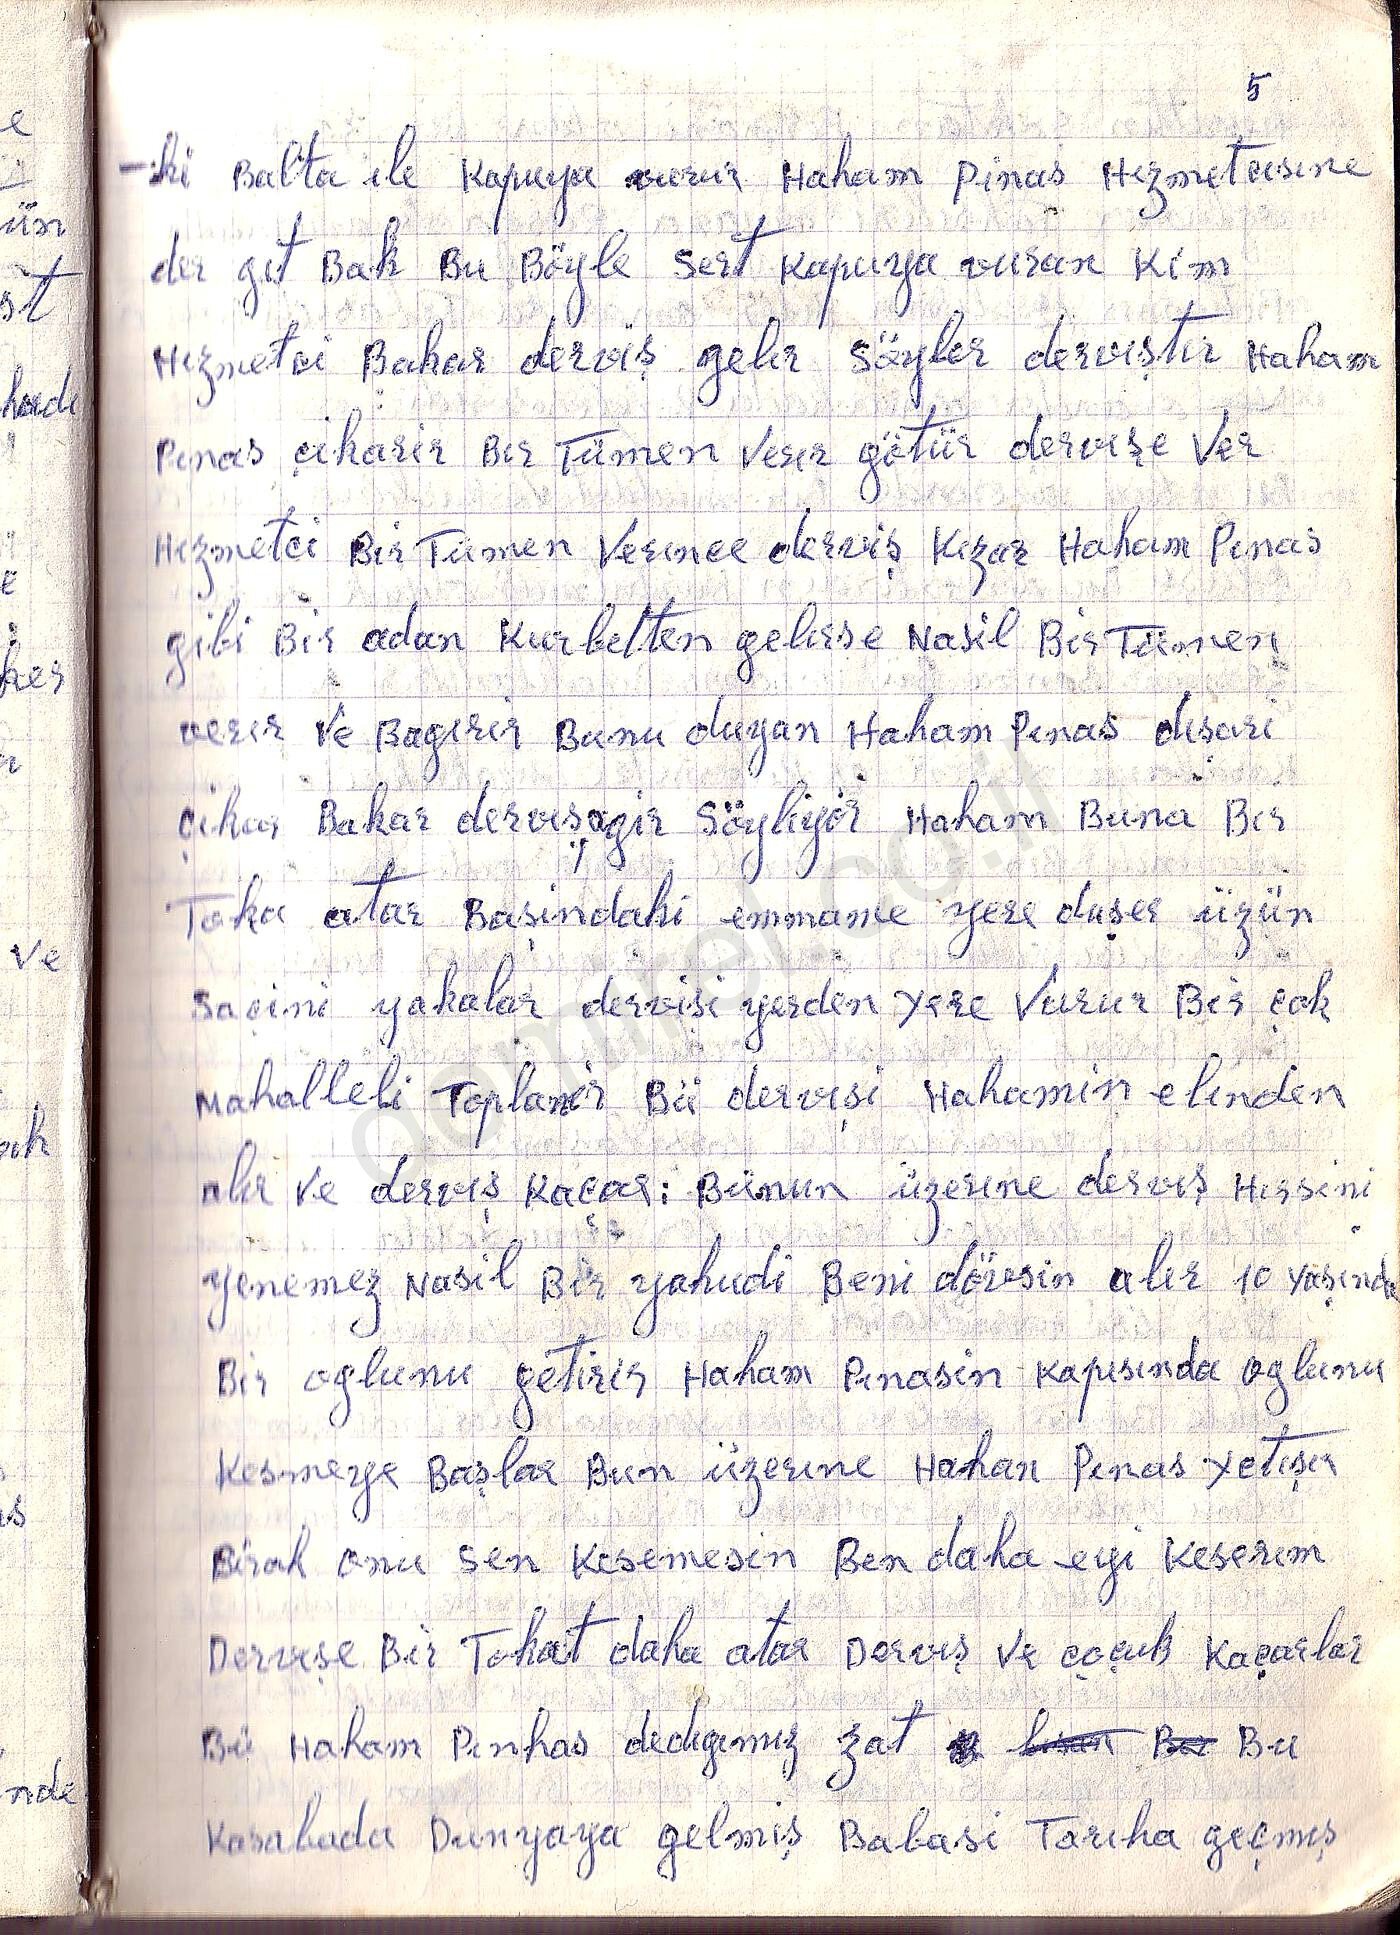 5
-ki Balta ile Kapuya vurur Haham Pinas Hizmetcisine
der git Bak Bu Böyle sert Kapuya vuran Kim
Hizmetci Bakar derviş gelir Söyler derviştir Haham
Pinas çikarir Bir Tümen Verir götür dervişe Ver
Hizmetci Bir Tümen Verince derviş Kizar Haham Pinas
gibi Bir adan Kurbetten gelirse Nasil Bir Tümen
verir Ve Bagirir Bunu duyan Haham Pinas dişari
çikar Bakar derviş agir Söyliyör Haham Buna Bir
Toka atar Başindaki emmame yere duşer üzün
saçini yakalar dervişi yerden yere Vurur Bir çok
Mahalleli Toplanir Bü dervişi Hahamin elinden
alir Ve derviş Kaçar: Bünun üzerine derviş Hirsini
yenemez Nasil Bir yahudi Beni dövsin alir 10 yaşinda
Bir oglunu getirir Haham Pinasin Kapisinda oglunu
Kesmeye Başlar Bun üzerine Hahan Pinas yetişir
Birak onu sen Kesemesin Ben daha eyi Keserim
Dervişe Bir Tokat daha atar Derviş Ve çoçuk Kaçarlar
Bü Haham Pinhas dedigimiz zat Bu
Kasabada Dunyaya gelmiş Babasi Tariha geçmiş
e
ün
st
ker
Ve
nde
damirel.co.il